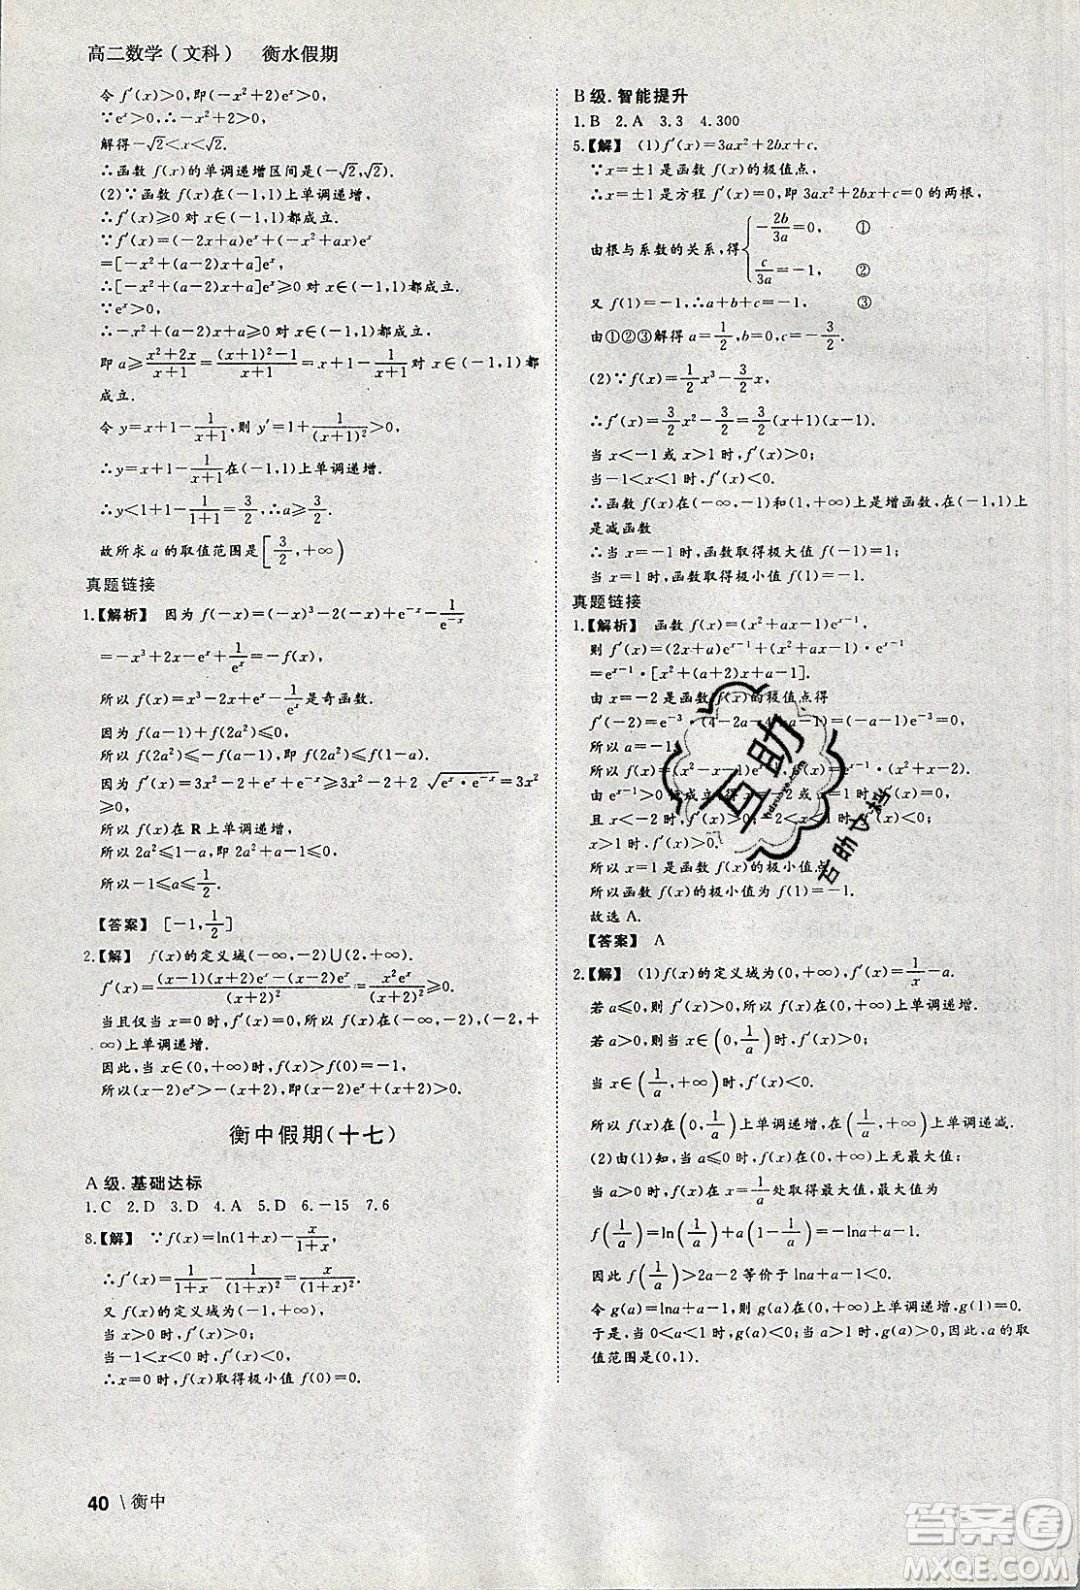 高二数学(文科) 衡水假期
令 f′(x)>0,即(-x²+2)eˣ>0,
∵eˣ>0,∴-x²+2>0,
解得-√2<x<√2.
∴函数 f(x)的单调递增区间是(-√2,√2).
(2)∵函数 f(x)在(-1,1)上单调递增,
∴f′(x)≥0 对 x∈(-1,1)都成立.
∵f′(x)=(-2x+a)eˣ+(-x²+ax)eˣ
=[-x²+(a-2)x+a]eˣ,
∴[-x²+(a-2)x+a]eˣ≥0 对 x∈(-1,1)都成立.
∵eˣ>0,
∴-x²+(a-2)x+a≥0 对 x∈(-1,1)都成立,
即 a≥(x²+2x)/(x+1)=((x+1)²-1)/(x+1)=x+1-1/(x+1)对 x∈(-1,1)都
成立.
令 y=x+1-1/(x+1),则 y′=1+1/(x+1)²>0,
∴y=x+1-1/(x+1)在(-1,1)上单调递增,
∴y<1+1-1/(1+1)=3/2,∴a≥3/2.
故所求 a 的取值范围是[3/2,+∞)
真题链接
1.【解析】 因为 f(-x)=(-x)³-2(-x)+e⁻ˣ-1/e⁻ˣ
=-x³+2x-eˣ+1/eˣ=-f(x),
所以 f(x)=x³-2x+eˣ-1/eˣ是奇函数.
因为 f(a-1)+f(2a²)≤0,
所以 f(2a²)≤-f(a-1),即 f(2a²)≤f(1-a).
因为 f′(x)=3x²-2+eˣ+e⁻ˣ≥3x²-2+2√(eˣ·e⁻ˣ)=3x²
≥0,
所以 f(x)在 R 上单调递增,
所以 2a²≤1-a,即 2a²+a-1≤0,
所以-1≤a≤1/2.
【答案】 [-1,1/2]
2.【解】 f(x)的定义域(-∞,-2)∪(-2,+∞).
f′(x)=((x-1)(x+2)eˣ-(x-2)eˣ)/(x+2)²=x²eˣ/(x+2)²≥0.
当且仅当 x=0 时,f′(x)=0,所以 f(x)在(-∞,-2),(-2,+
∞)上单调递增.
因此,当 x∈(0,+∞)时,f(x)>f(0)=-1,
所以(x-2)eˣ>-(x+2),即(x-2)eˣ+x+2>0.
衡中假期(十七)
A 级.基础达标
1.C 2.D 3.D 4.A 5.D 6.-15 7.6
8.【解】 ∵f(x)=ln(1+x)-x/(1+x),
∴f′(x)=1/(1+x)-1/(1+x)²=x/(1+x)².
又 f(x)的定义域为(-1,+∞),
当 x>0 时,f′(x)>0;
当-1<x<0 时,f′(x)<0;
∴x=0 时,f(x)取得极小值 f(0)=0.
B 级.智能提升
1.B 2.A 3.3 4.300
5.【解】 (1)f′(x)=3ax²+2bx+c.
∵x=±1 是函数 f(x)的极值点,
∴x=±1 是方程 f′(x)=0,即 3ax²+2bx+c=0 的两根,
由根与系数的关系,得{-2b/3a=0, ①
c/3a=-1, ②
又 f(1)=-1,∴a+b+c=-1, ③
由①②③解得 a=1/2,b=0,c=-3/2.
(2)∵f(x)=1/2x³-3/2x,
∴f′(x)=3/2x²-3/2=3/2(x+1)(x-1).
当 x<-1 或 x>1 时,f′(x)>0;
当-1<x<1 时,f′(x)<0.
∴函数 f(x)在(-∞,-1)和(1,+∞)上是增函数,在(-1,1)上
是减函数
∴当 x=-1 时,函数取得极大值 f(-1)=1;
当 x=1 时,函数取得极小值 f(1)=-1.
真题链接
1.【解析】 函数 f(x)=(x²+ax-1)eˣ⁻¹,
则 f′(x)=(2x+a)eˣ⁻¹+(x²+ax-1)·eˣ⁻¹
=eˣ⁻¹·[x²+(a+2)x+a-1].
由 x=-2 是函数 f(x)的极值点得
f′(-2)=e⁻³·(4-2a-4+a-1)=(-a-1)e⁻³=0,
所以 a=-1.
所以 f(x)=(x²-x-1)eˣ⁻¹,f′(x)=eˣ⁻¹·(x²+x-2).
由 eˣ⁻¹>0 恒成立,得 x=-2 或 x=1 时,f′(x)=0,
且 x<-2 时,f′(x)>0;-2<x<1 时,f′(x)<0;
x>1 时,f′(x)>0.
所以 x=1 是函数 f(x)的极小值点.
所以函数 f(x)的极小值为 f(1)=-1.
故选 A.
【答案】 A
2.【解】 (1)f(x)的定义域为(0,+∞),f′(x)=1/x-a.
若 a≤0,则 f′(x)>0,所以 f(x)在(0,+∞)上单调递增.
若 a>0,则当 x∈(0,1/a)时,f′(x)>0;
当 x∈(1/a,+∞)时,f′(x)<0.
所以 f(x)在(0,1/a)上单调递增,在(1/a,+∞)上单调递减.
(2)由(1)知,当 a≤0 时,f(x)在(0,+∞)上无最大值;
当 a>0 时,f(x)在 x=1/a处取得最大值,最大值为
f(1/a)=ln(1/a)+a(1-1/a)=-lna+a-1.
因此 f(1/a)>2a-2 等价于 lna+a-1<0.
令 g(a)=lna+a-1,则 g(a)在(0,+∞)上单调递增,g(1)=0.
于是,当 0<a<1 时,g(a)<0;当 a>1 时,g(a)>0,因此,a 的取
值范围是(0,1).
互助
40\衡中
答案圈
MXQE.COM